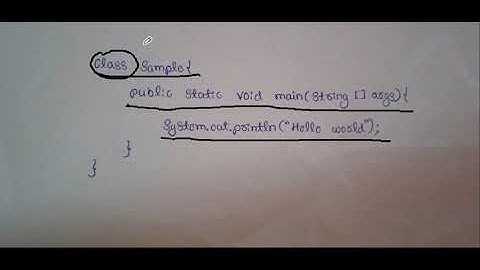 class Sample{
public static void main(String [] args){
System.out.println("Hello world");
}
}